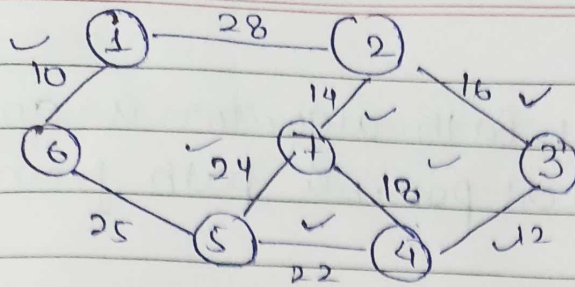 1 28 2
10 14 16
6 24 7 18 3
25 5 22 4 12